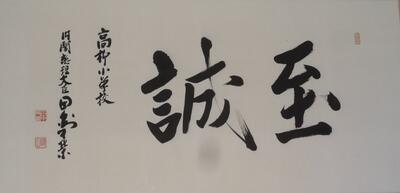 至誠
高柳小学校
内閣総理大臣田中角栄